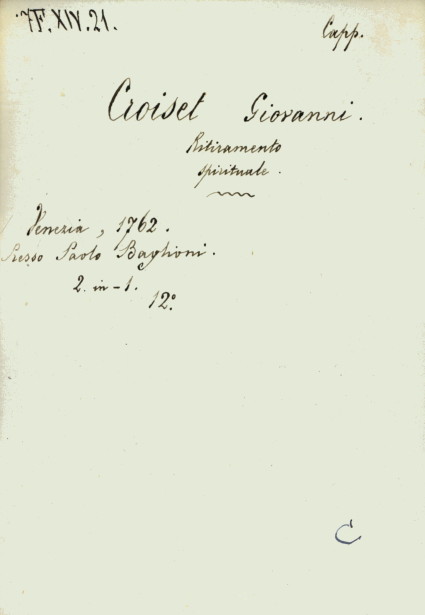 7F.XIV.21.
Capp.
Croiset Giovanni.
Ritiramento
spirituale.
Venezia, 1762.
Presso Paolo Baglioni.
2. in-1.
12º.
C